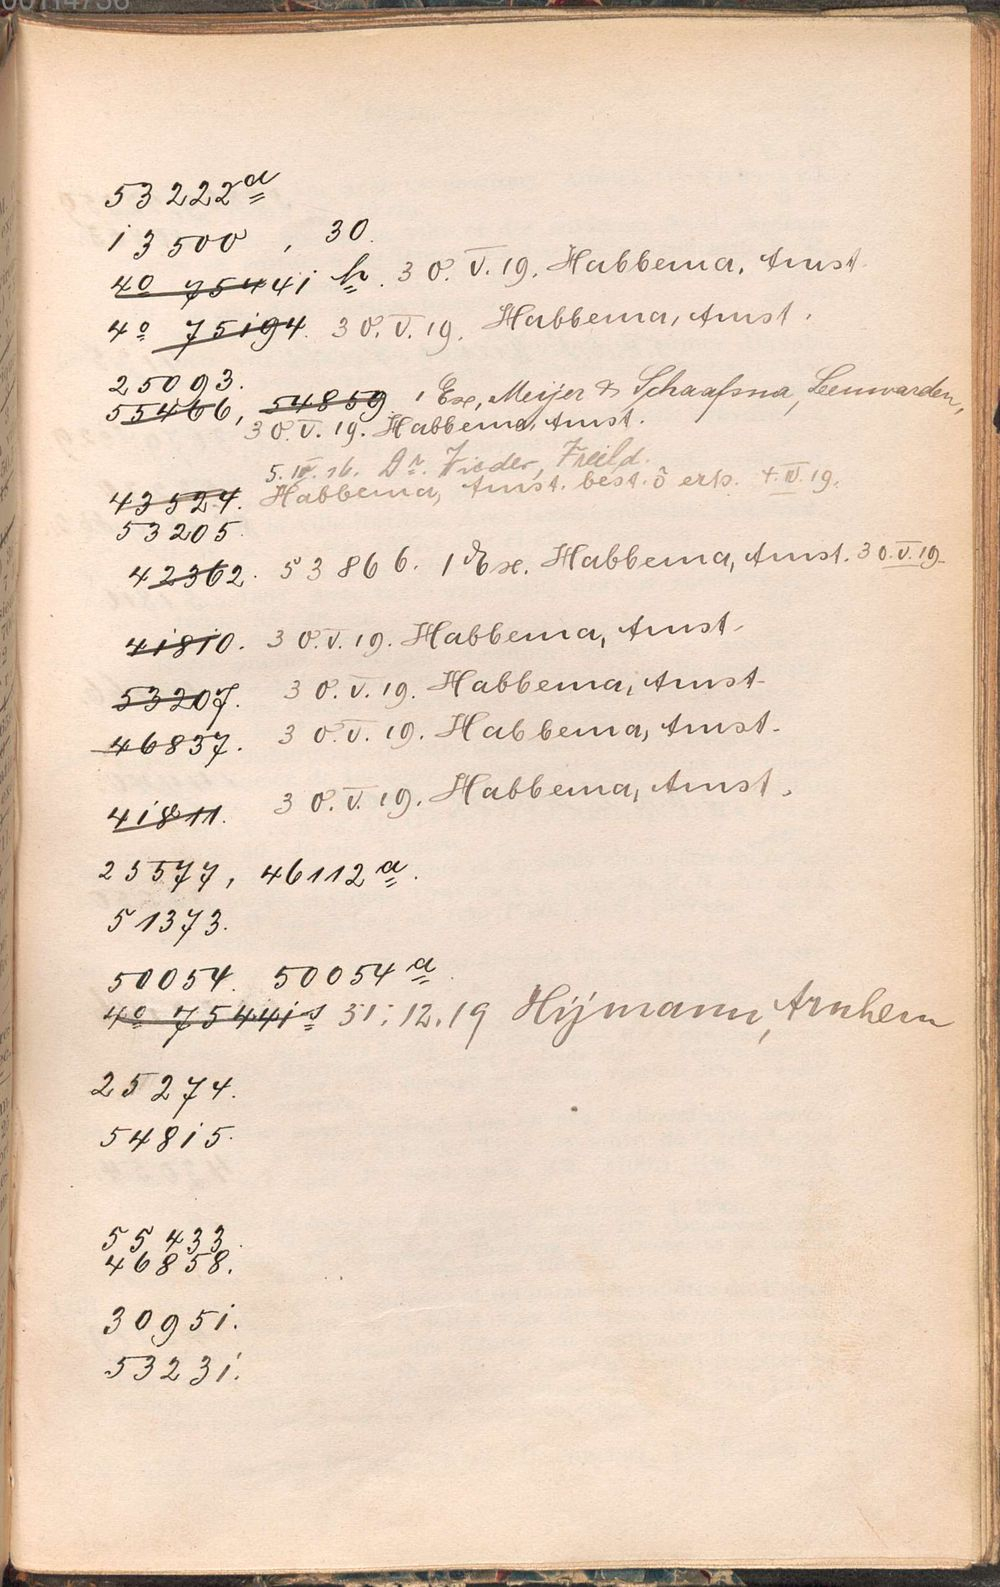 53222a
13500, 30.
4o 75441 h. 30.V.19. Habbema, Amst.
4o 75194. 30.V.19. Habbema, Amst.
25093.
55466, 54859 1 Ex, Meijer & Schaafsma, Leeuwarden,
30.V.19. Habbema, Amst.
5. 16. Dr.
43524. Habbema, Amst. best. 19.
53205.
42362. 53866. 1 Ex. Habbema, Amst. 30.V.19.
41810. 30.V.19. Habbema, Amst.
53207. 30.V.19. Habbema, Amst.
46837. 30.V.19. Habbema, Amst.
41811. 30.V.19. Habbema, Amst.
25577, 46112a.
51373.
50054. 50054a.
4o 75441s 31.12.19 Hijmann, Arnhem
25274.
54815.
55433.
46858.
30951.
53231.